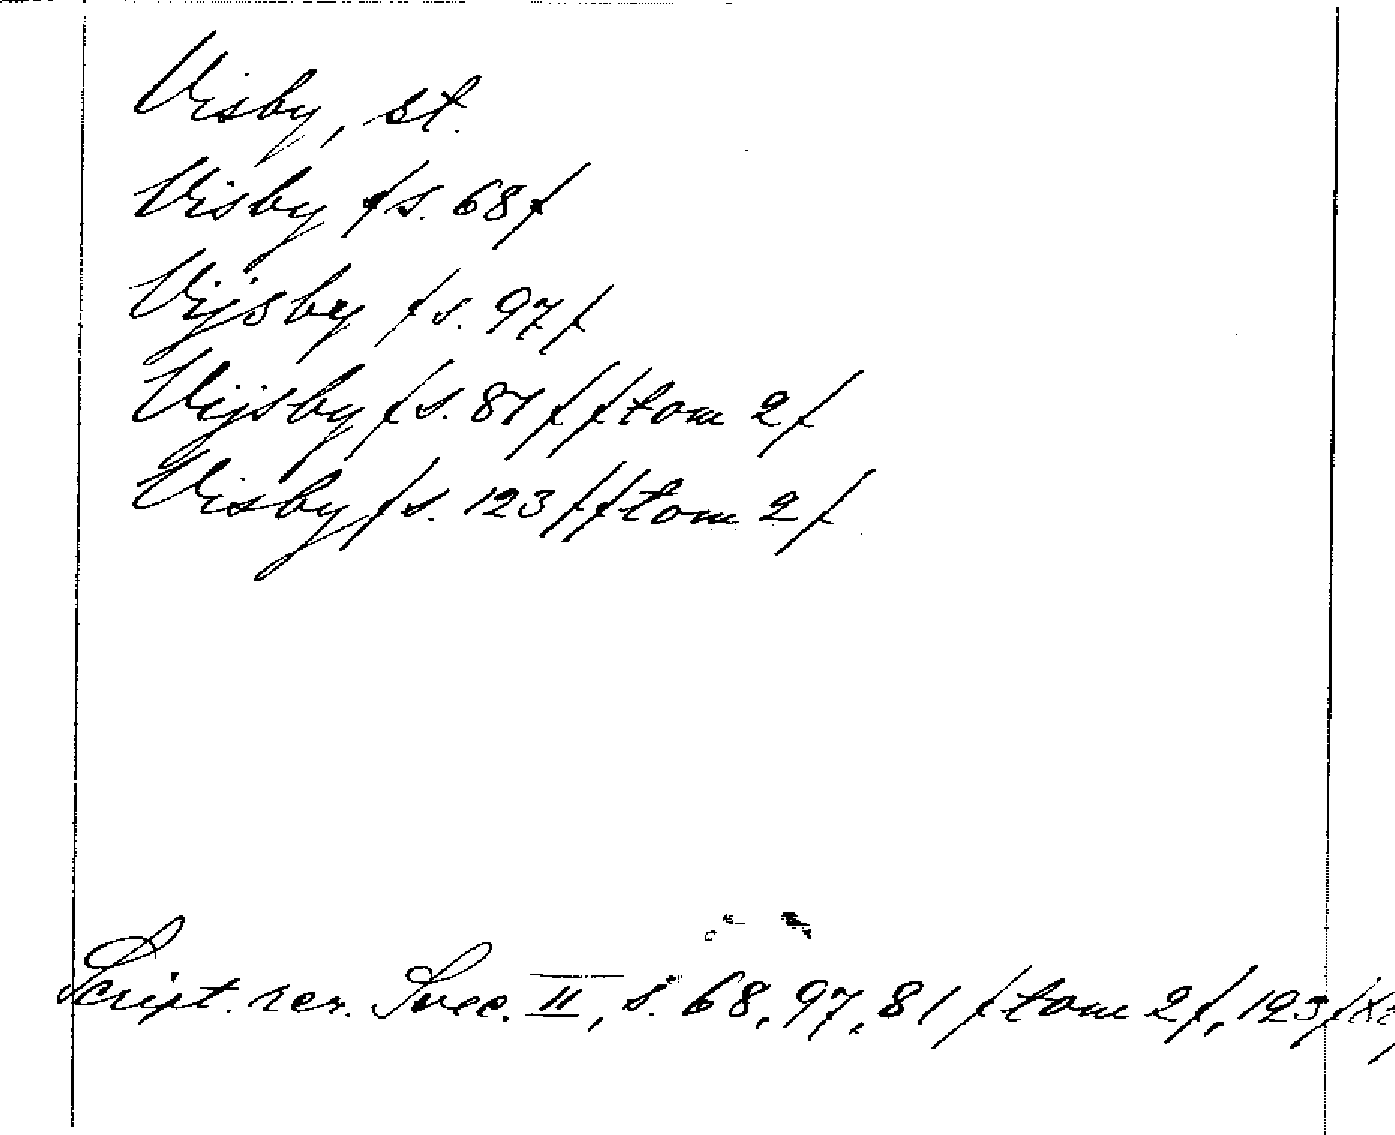 Visby, st.
Visby /s. 68/
Vijsby /s. 97/
Vijsby /s. 81/ /tom 2/
Visby /s. 123/ /tom 2/
Script. rer. Svec. II, s. 68, 97, 81 /tom 2/, 123/